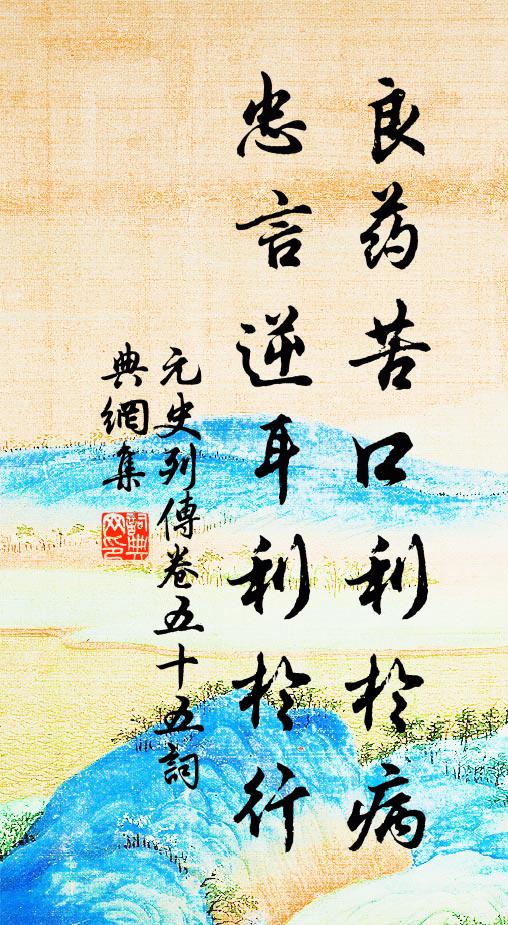 良药苦口利於病
忠言逆耳利於行
元史列傳卷五十五詞
典網集
詞典
网印